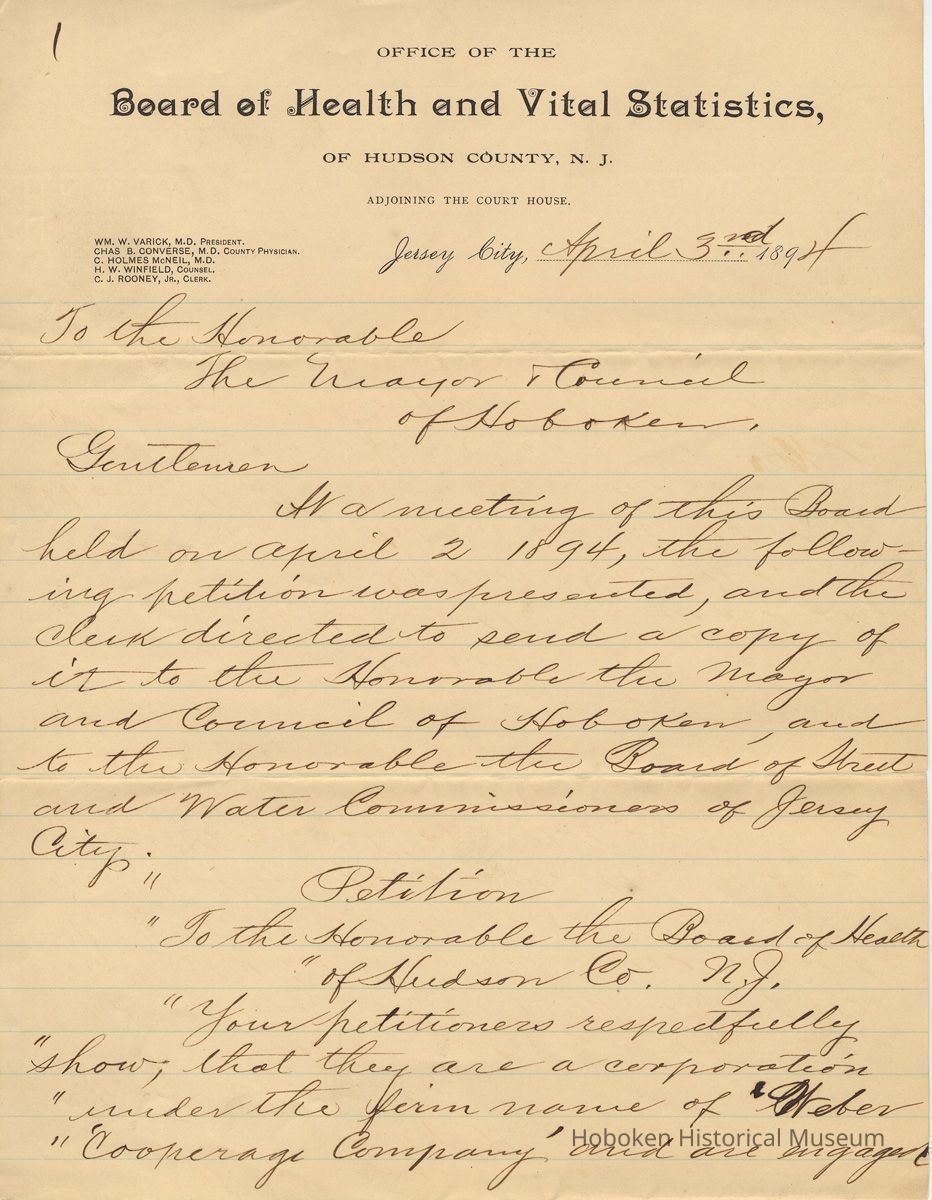 1
OFFICE OF THE
Board of Health and Vital Statistics,
OF HUDSON COUNTY, N. J.
ADJOINING THE COURT HOUSE.
WM. W. VARICK, M.D. PRESIDENT.
CHAS B. CONVERSE, M.D. COUNTY PHYSICIAN.
C. HOLMES McNEIL, M.D.
H. W. WINFIELD, COUNSEL.
C. J. ROONEY, JR., CLERK.
Jersey City, April 3nd 1894
To the Honorable
The Mayor & Council
of Hoboken.
Gentlemen
At a meeting of this Board
held on april 2 1894, the follow-
ing petition was presented, and the
clerk directed to send a copy of
it to the Honorable the Mayor
and Council of Hoboken, and
to the Honorable the Board of Street
and Water Commissioners of Jersey
City.
" Petition
"To the Honorable the Board of Health
"of Hudson Co. N.J.
"Your petitioners respectfully
"show; that they are a corporation
"under the firm name of 'Weber
"'Cooperage Company' and are engaged
Hoboken Historical Museum